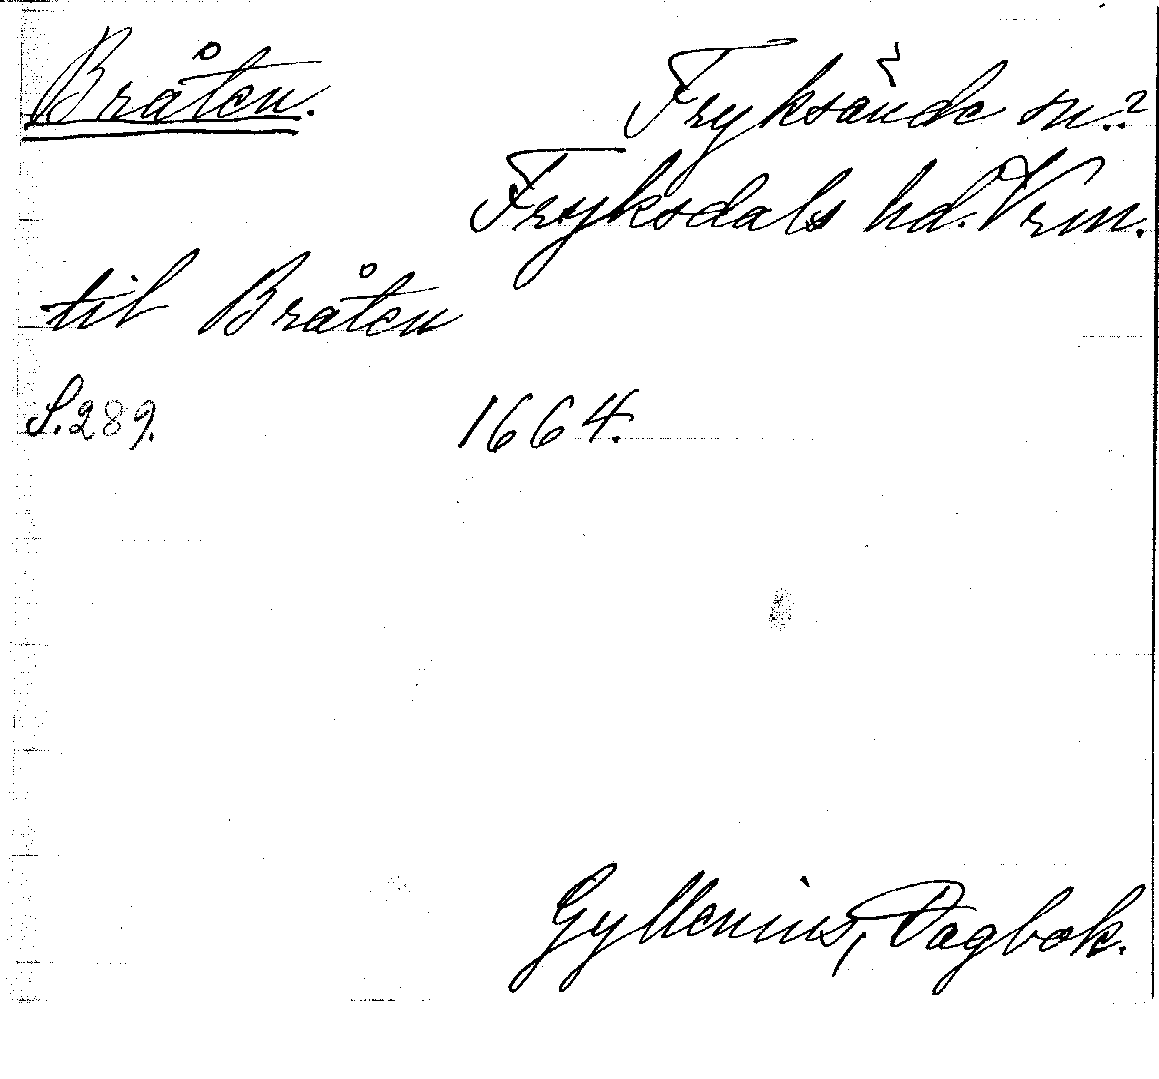 Bråten.
Fryksände sn.?
Fryksdals hd. Vrm.
til Bråten
S. 289. 1664.
Gyllenius, Dagbok.